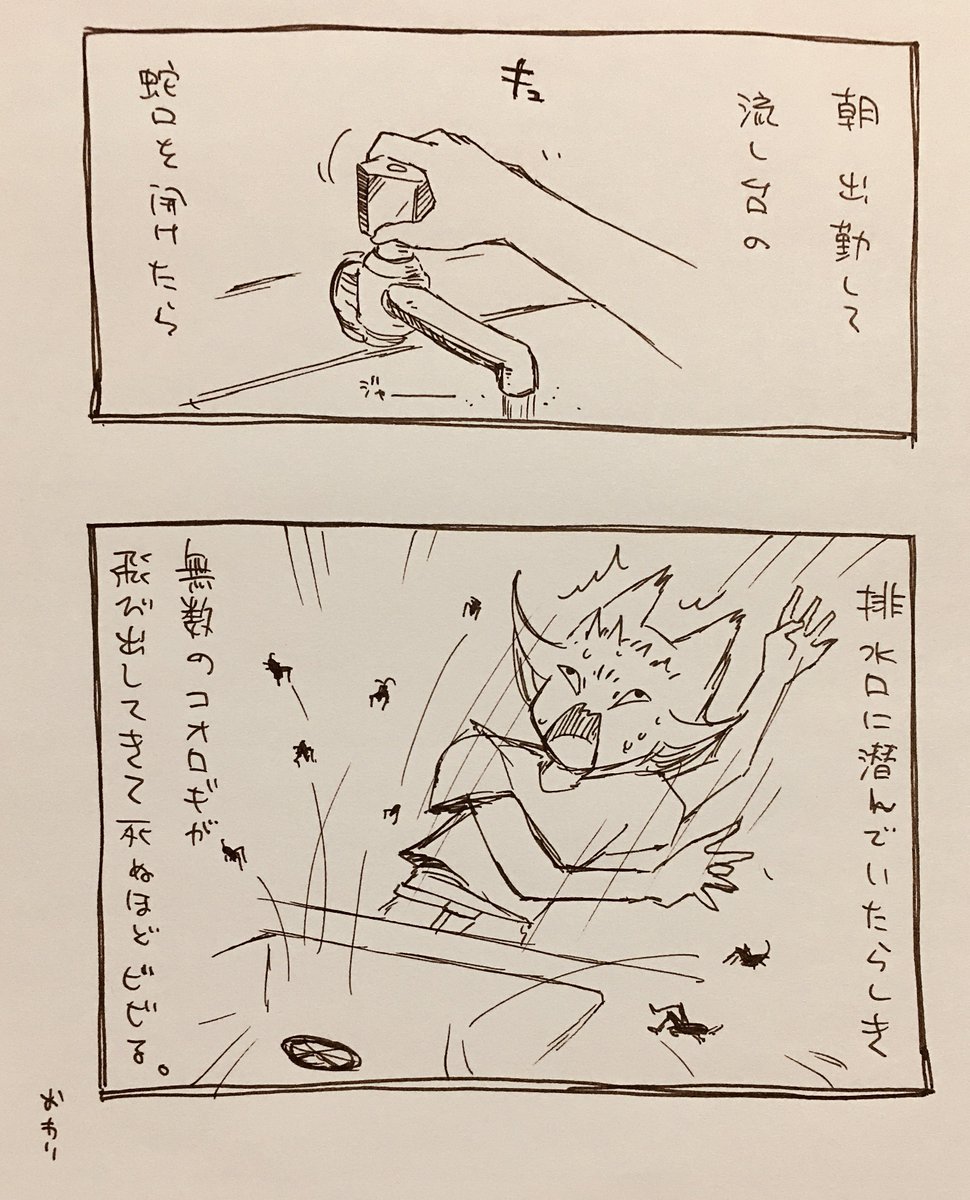 朝出勤して
流し台の
キュ
蛇口を開けたら
ジャ──
排水口に潜んでいたらしき
無数のコオロギが
飛び出してきて死ぬほどビビる。
おわり